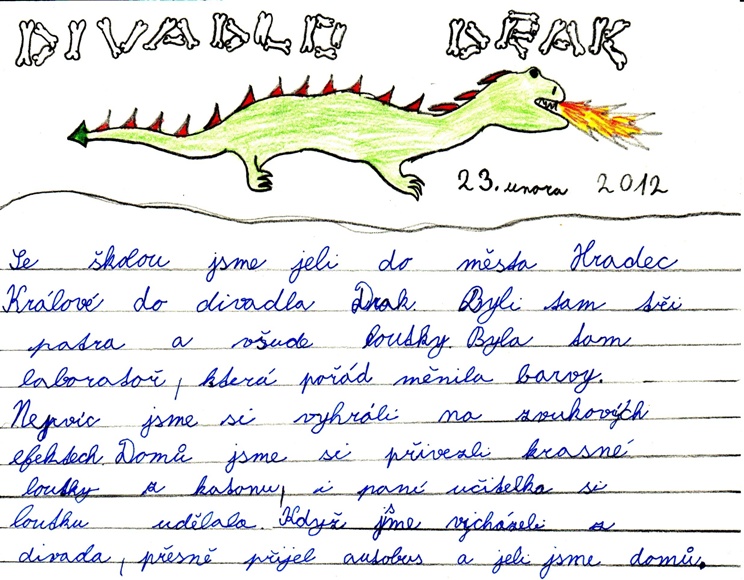 DIVADLO DRAK
23. února 2012
Se školou jsme jeli do města Hradec
Králové do divadla Drak. Byli tam tři
patra a všude loutky. Byla tam
laboratoř, která pořád měnila barvy.
Nejvíc jsme si vyhráli na zvukových
efektech. Domů jsme si přivezli krasné
loutky z katonu, i paní učitelka si
loutku udělala. Když jsme vycházeli z
divada, přesně přijel autobus a jeli jsme domů.